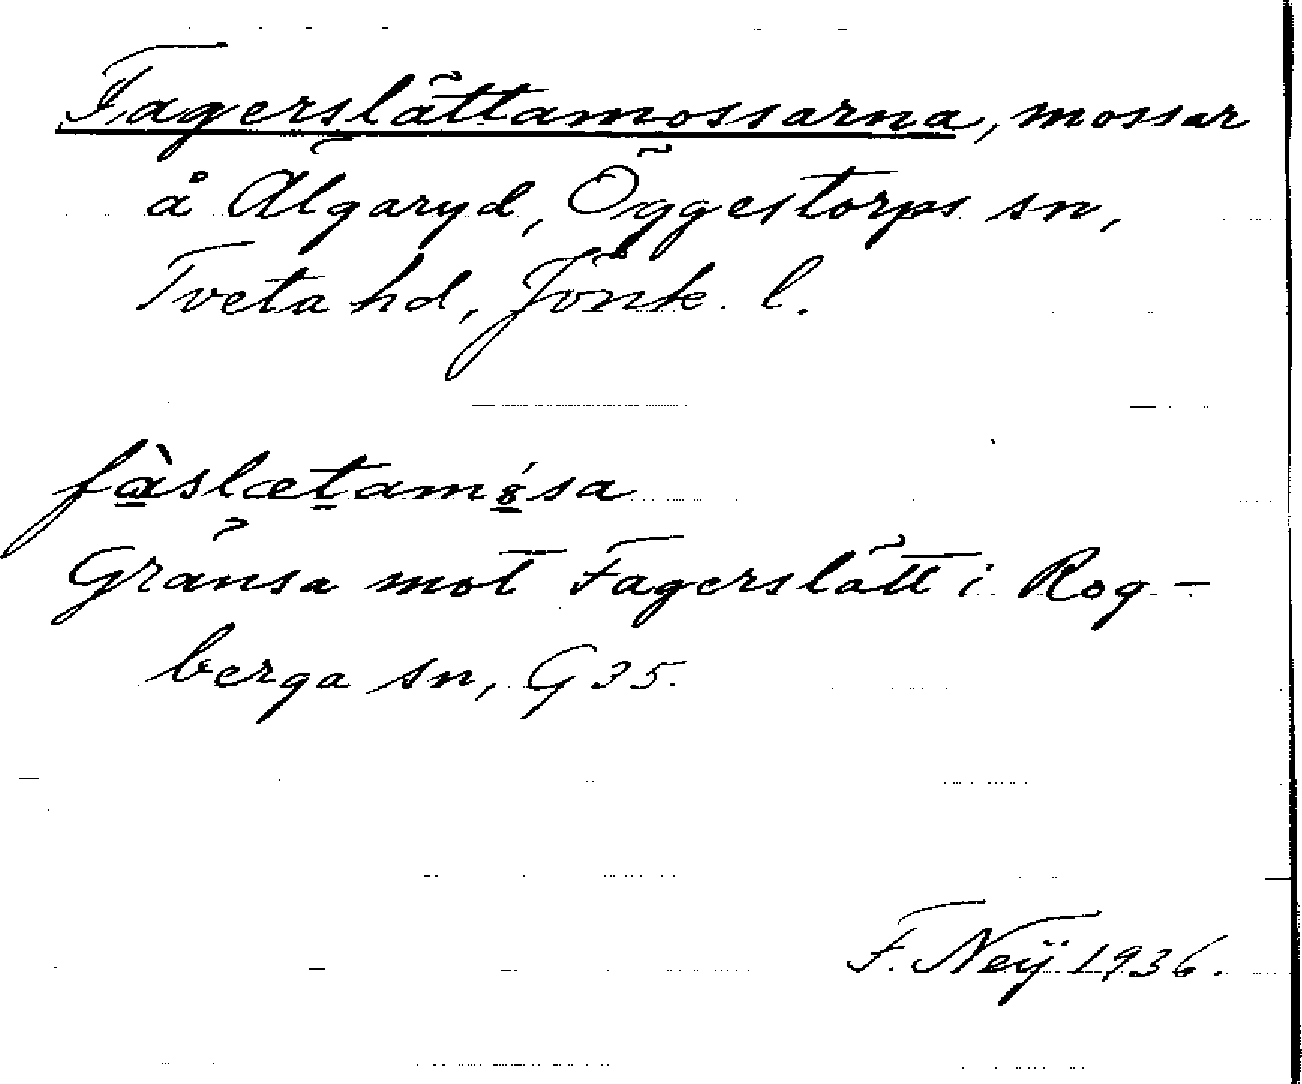 Fagerslättamossarna, mossar
å Älgaryd, Öggestorps sn,
Tveta hd, Jönk. l.
Gränsa mot Fagerslätt i Rog-
berga sn, G 35.
F. Neÿ 1936.